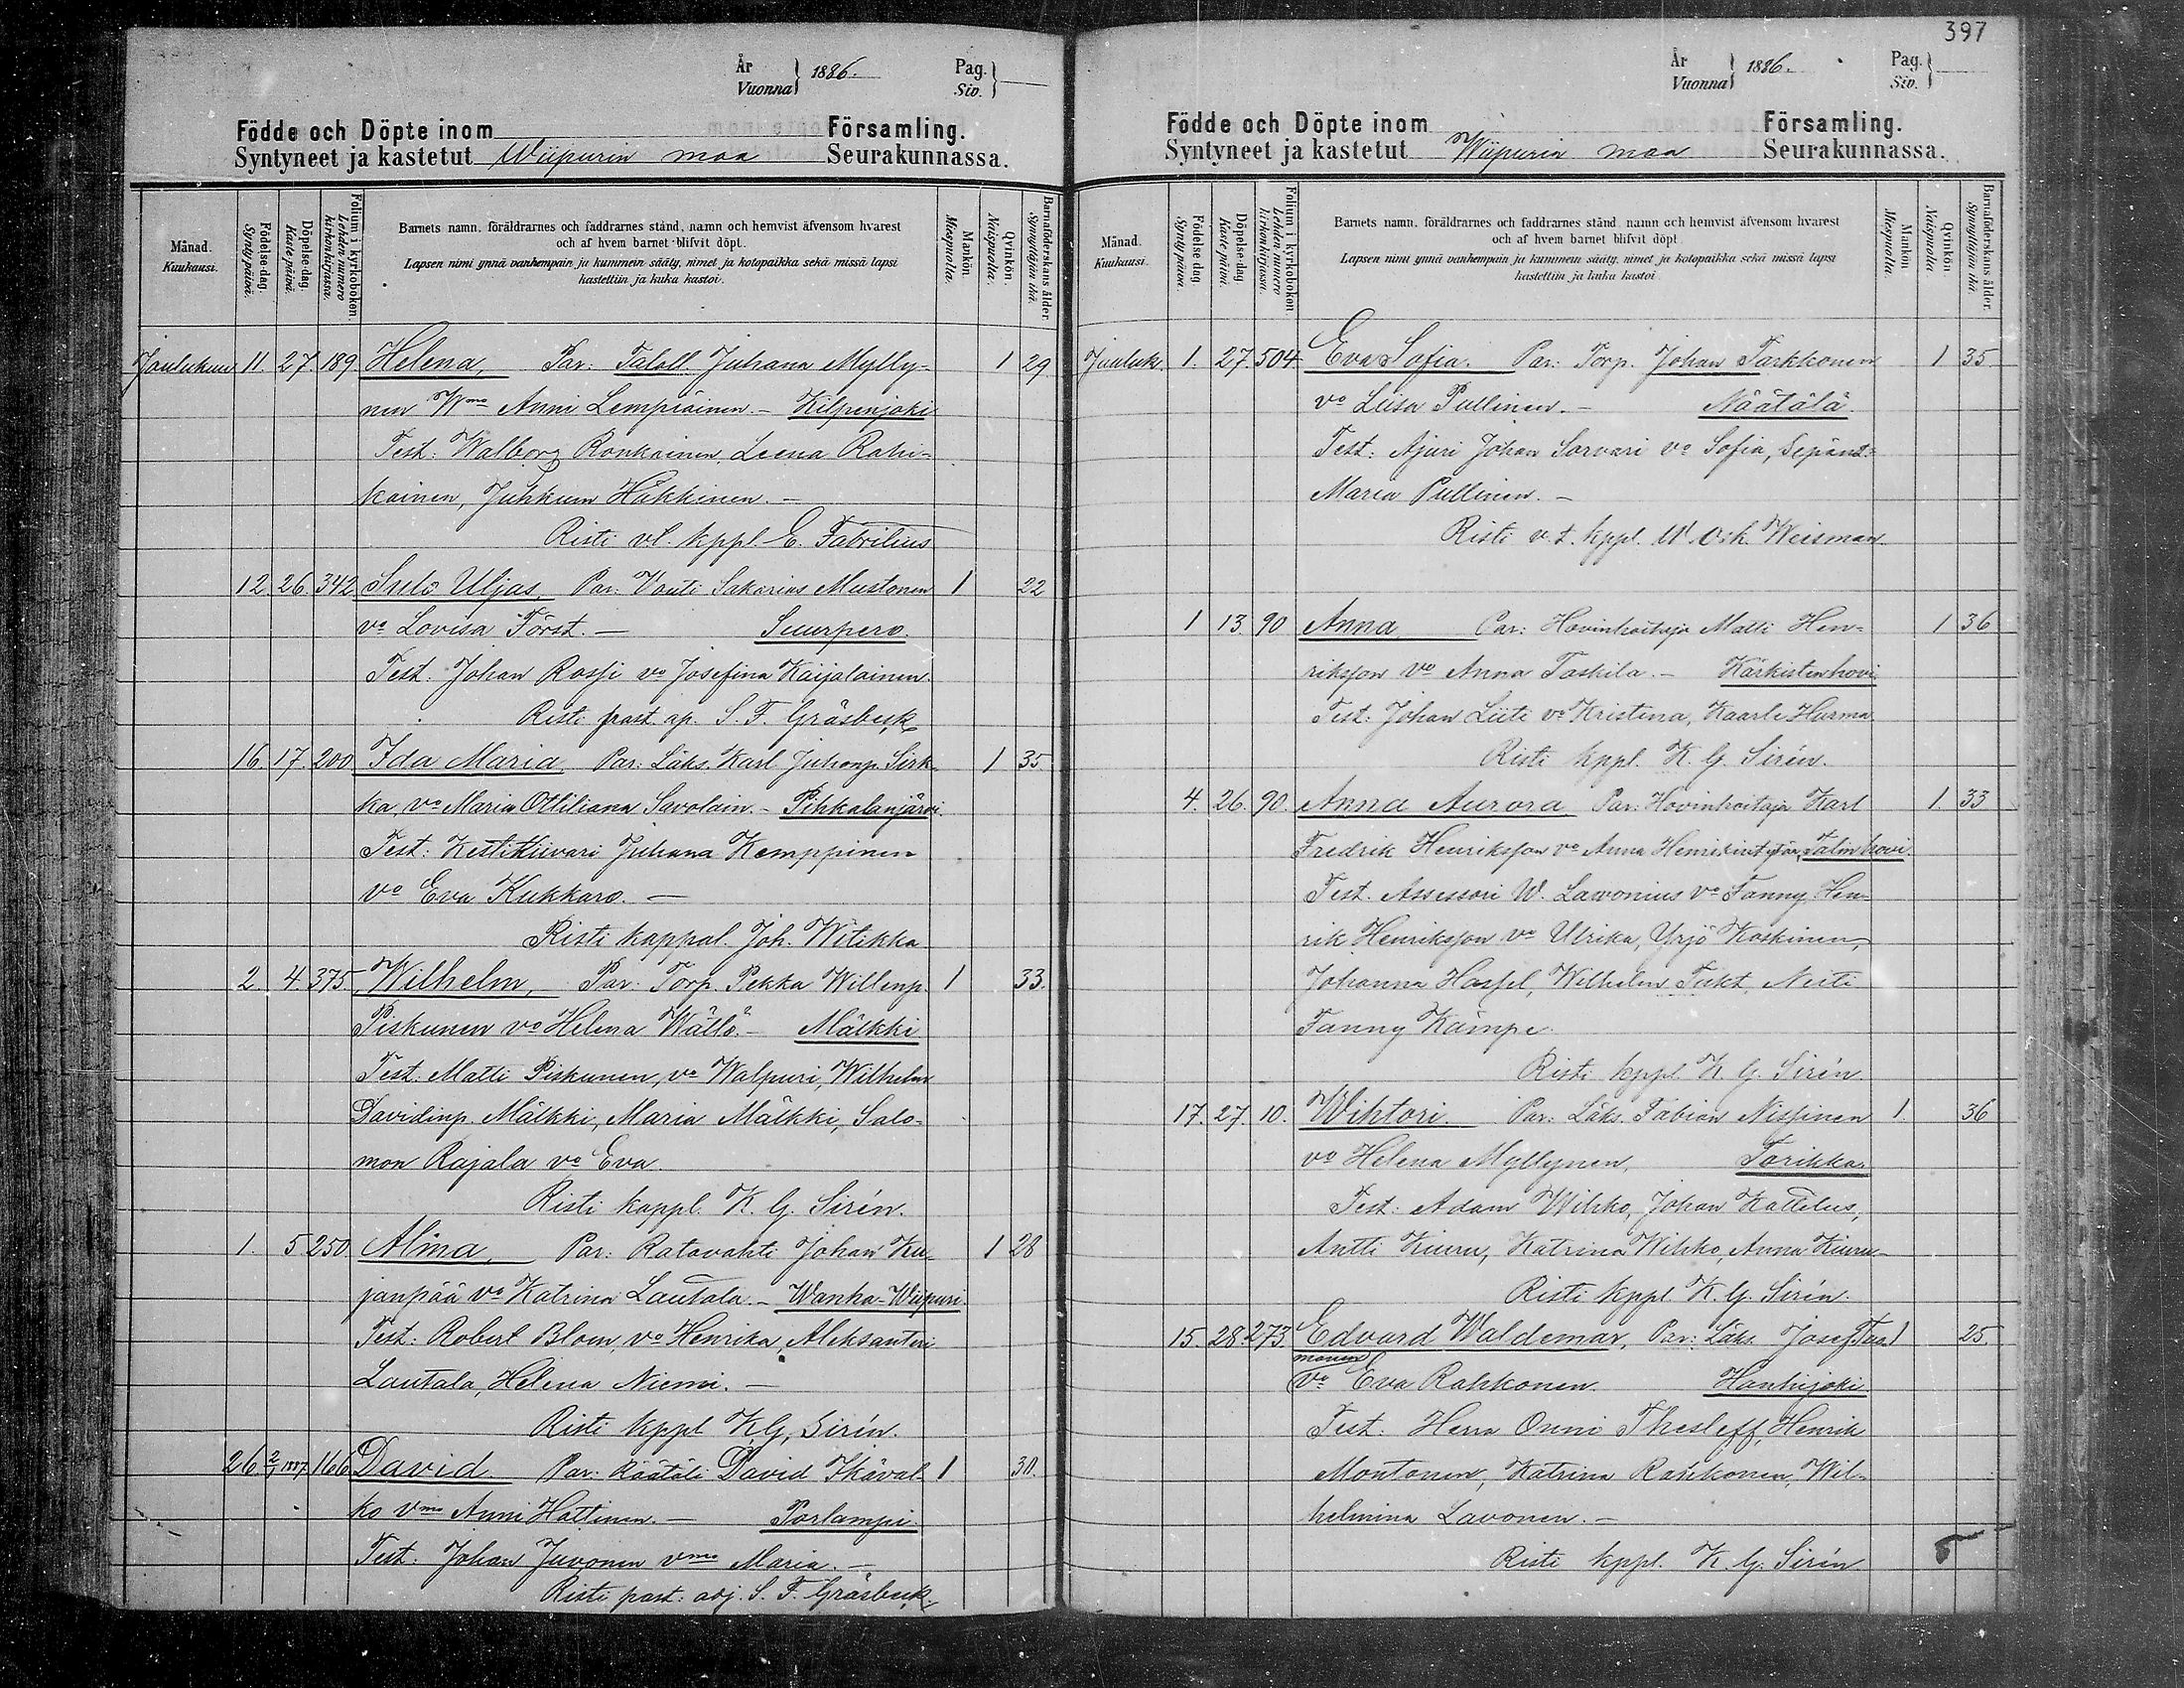 År
Vuonna } 1886.
Pag.
Siv. }
Födde och Döpte inom Församling.
Syntyneet ja kastetut Wiipurin maa Seurakunnassa.
Månad.
Kuukausi.
Födelse-dag.
Synty päivä.
Döpelse-dag.
Kaste päivä.
Folium i kyrkoboken.
Lehden numero kirkonkirjassa.
Barnets namn, föräldrarnes och faddrarnes stånd, namn och hemvist äfvensom hvarest
och af hvem barnet blifvit döpt.
Lapsen nimi ynnä vanhempain ja kummein sääty, nimet ja kotopaikka sekä missä lapsi
kastettiin ja kuka kastoi.
Mankön.
Miespuolia.
Qvinkön.
Naispuolia.
Barnaföderskans ålder.
Synnyttäjän ikä.
Joulukuu 11. 27. 189. Helena, Par: Taloll. Juhana Mylly- 1 29
nen Wmo Anni Lempiäinen. - Kilpeenjoki
Test: Walborg Ronkainen, Leena Rahi-
kainen, Juhkum Häkkinen. -
Risti vl. kppl. E. Fabrilius
12. 26. 342 Sulo Uljas, Par: Vouti Sakarius Mustonen 1 22
vo Lovisa Först. - Suurpero.
Test. Johan Rossi vo Josefina Käijäläinen.
Risti past. ap. S. F. Gräsbeck
16. 17. 200 Ida Maria, Par: Läks. Karl Juhonp. Sirk- 1 35
ka, vo Maria Ottiliana Savolain. - Pihkalanjärvi.
Test: Kestikiivari Juhana Kemppinen
vo Eva Kukkaro. -
Risti kappal. Joh. Witikka.
2. 4. 375. Wilhelm, Par: Torp. Pekka Willenp. 1 33.
Piskunen vo Helena Wättö. - Mälkki
Test. Matti Piskunen, vo Walpuri, Wilhelm
Davidinp. Mälkki, Maria Mälkki, Salo-
mon Rajala vo Eva.
Risti kappl. K. G. Sirén.
1. 5 250 Alina, Par: Ratavahti Johan Ku- 1 28
janpää vo Katrina Lautala. - Wanha-Wiipuri.
Test: Robert Blom, vo Henrika, Aleksanteri
Lautala, Helena Niemi. -
Risti kppl K. G. Sirén.
26 2/1 1887 166 David. Par: Räätäli David Ikäval- 1 30.
ko vmo Anni Hättinen. - Porlampi.
Test: Johan Juvonen vmo Maria. -
Risti past. adj. S. F. Gräsbeck.
397
År
Vuonna } 1886.
Pag.
Siv. }
Födde och Döpte inom Församling.
Syntyneet ja kastetut Wiipurin maa Seurakunnassa.
Månad.
Kuukausi.
Födelse-dag.
Synty päivä.
Döpelse-dag.
Kaste päivä.
Folium i kyrkoboken.
Lehden numero kirkonkirjassa.
Barnets namn, föräldrarnes och faddrarnes stånd, namn och hemvist äfvensom hvarest
och af hvem barnet blifvit döpt.
Lapsen nimi ynnä vanhempain ja kummein sääty, nimet ja kotopaikka sekä missä lapsi
kastettiin ja kuka kastoi.
Mankön.
Miespuolia.
Qvinkön.
Naispuolia.
Barnaföderskans ålder.
Synnyttäjän ikä.
Jouluk. 1. 27. 504 Eva Sofia. Par: Torp. Johan Tarkkonen 1 35.
vo Liisa Pullinen. - Näätälä.
Test: Ajuri Johan Sorvari vo Sofia, Sepäns:
Maria Pullinen. -
Risti v. t. kppl. W. Osk. Weisman.
1 13 90 Anna Par: Hovinhoitaja Matti Hen- 1 36
riksson vo Anna Taskila. - Kärkistenhovi.
Test: Johan Liiti vo Kristina, Kaarle Hurma
Risti kppl. K. G. Sirén.
4. 26. 90. Anna Aurora Par: Hovinhoitaja Karl 1. 33
Fredrik Henriksson vo Anna Henrikint., Talinhovi.
Test. Assessori W. Lavonius vo Fanny, Hen-
rik Henriksson vo Ulrika, Yrjö Koskinen,
Johanna Hassel, Wilhelm Tukt, Neiti
Fanny Kämpe.
Risti kppl K. G. Sirén.
17. 27. 10. Wihtori. Par: Läks. Fabian Nissinen 1. 36
vo Helena Myllynen, Torikka.
Test: Adam Wihko, Johan Kattelus,
Antti Kiuru, Katrina Wihko, Anna Kiuru-
Risti kppl. K. G. Sirén.
15. 28. 273. Edvard Waldemar, Par: Läks. Josef Taa- 1 25.
manen
vo Eva Rahkonen. Hanhijoki
Test. Herra Onni Thesleff, Henrik
Montonen, Katrina Rahkonen, Wil-
helmina Lavonen. -
Risti kppl. K. G. Sirén